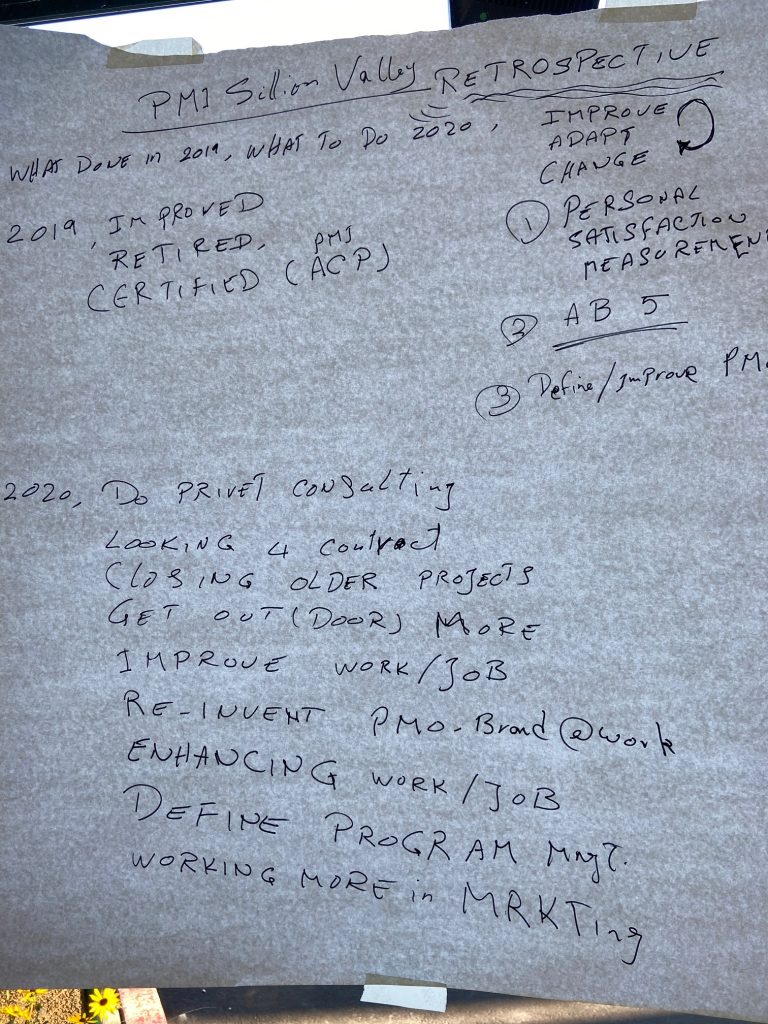 PMI Sillion Valley RETROSPECTIVE
WHAT DONE in 2019, WHAT TO DO 2020,
IMPROVE
ADAPT
CHANGE
2019, IMPROVED
RETIRED, PMI
CERTIFIED (ACP)
① PERSONAL
SATISFACTION
MEASUREMEN
② AB 5
③ Define/Improve PM
2020, DO PRIVET CONSulting
LOOKING 4 Contract
CLOSING OLDER PROJECTS
GET OUT(DOOR) MORE
IMPROVE WORK/JOB
RE-INVENT PMO-Brand@work
ENHANCING WORK/JOB
DEFINE PROGRAM MngT.
WORKING MORE in MRKTing